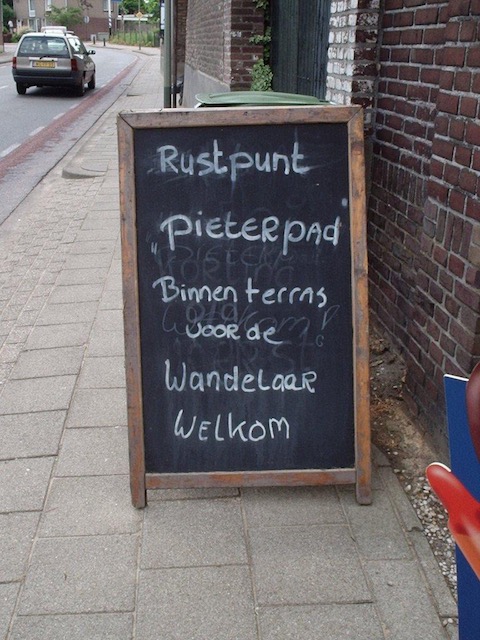 Rustpunt
"Pieterpad"
Binnenterras
voor de
Wandelaar
Welkom